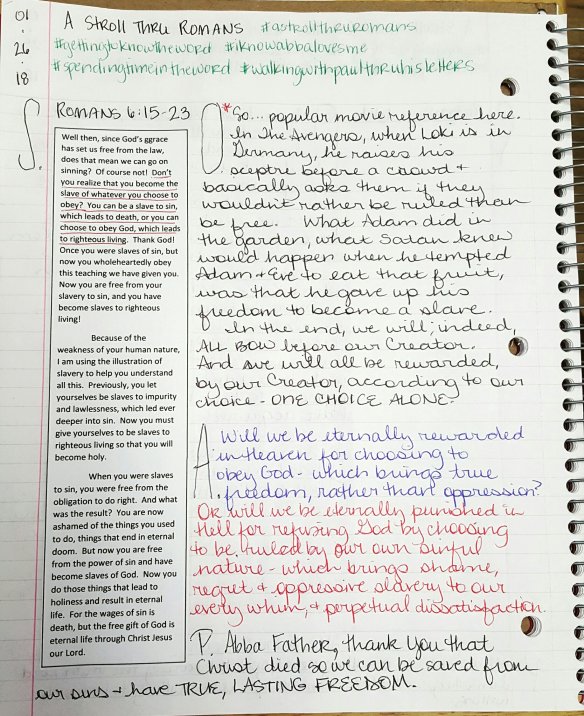 01
.
26
.
18
A STROLL THRU ROMANS #astrollthruromans
#gettingtoknowtheword #iknowabbalovesme
#spendingtimeintheword #walkingwithpaulthruhisletters
S.
ROMANS 6:15-23
Well then, since God's ggrace
has set us free from the law,
does that mean we can go on
sinning? Of course not! Don't
you realize that you become the
slave of whatever you choose to
obey? You can be a slave to sin,
which leads to death, or you can
choose to obey God, which leads
to righteous living. Thank God!
Once you were slaves of sin, but
now you wholeheartedly obey
this teaching we have given you.
Now you are free from your
slavery to sin, and you have
become slaves to righteous
living!
Because of the
weakness of your human nature,
I am using the illustration of
slavery to help you understand
all this. Previously, you let
yourselves be slaves to impurity
and lawlessness, which led ever
deeper into sin. Now you must
give yourselves to be slaves to
righteous living so that you will
become holy.
When you were slaves
to sin, you were free from the
obligation to do right. And what
was the result? You are now
ashamed of the things you used
to do, things that end in eternal
doom. But now you are free
from the power of sin and have
become slaves of God. Now you
do those things that lead to
holiness and result in eternal
life. For the wages of sin is
death, but the free gift of God is
eternal life through Christ Jesus
our Lord.
O. *So... popular movie reference here.
In The Avengers, when Loki is in
Germany, he raises his
sceptre before a crowd +
basically asks them if they
wouldn't rather be ruled than
be free. What Adam did in
the garden, what Satan knew
would happen when he tempted
Adam + Eve to eat that fruit,
was that he gave up his
freedom to become a slave.
In the end, we will, indeed,
ALL BOW before our Creator.
And we will all be rewarded,
by our Creator, according to our
choice - ONE CHOICE ALONE:
A. Will we be eternally rewarded
in Heaven for choosing to
obey God - which brings true
freedom, rather than oppression?
OR will we be eternally punished in
Hell for refusing God by choosing
to be ruled by our own sinful
nature - which brings shame,
regret + oppressive slavery to our
every whim, + perpetual dissatisfaction.
P. Abba Father, thank You that
Christ died so we can be saved from
our sins + have TRUE, LASTING FREEDOM.